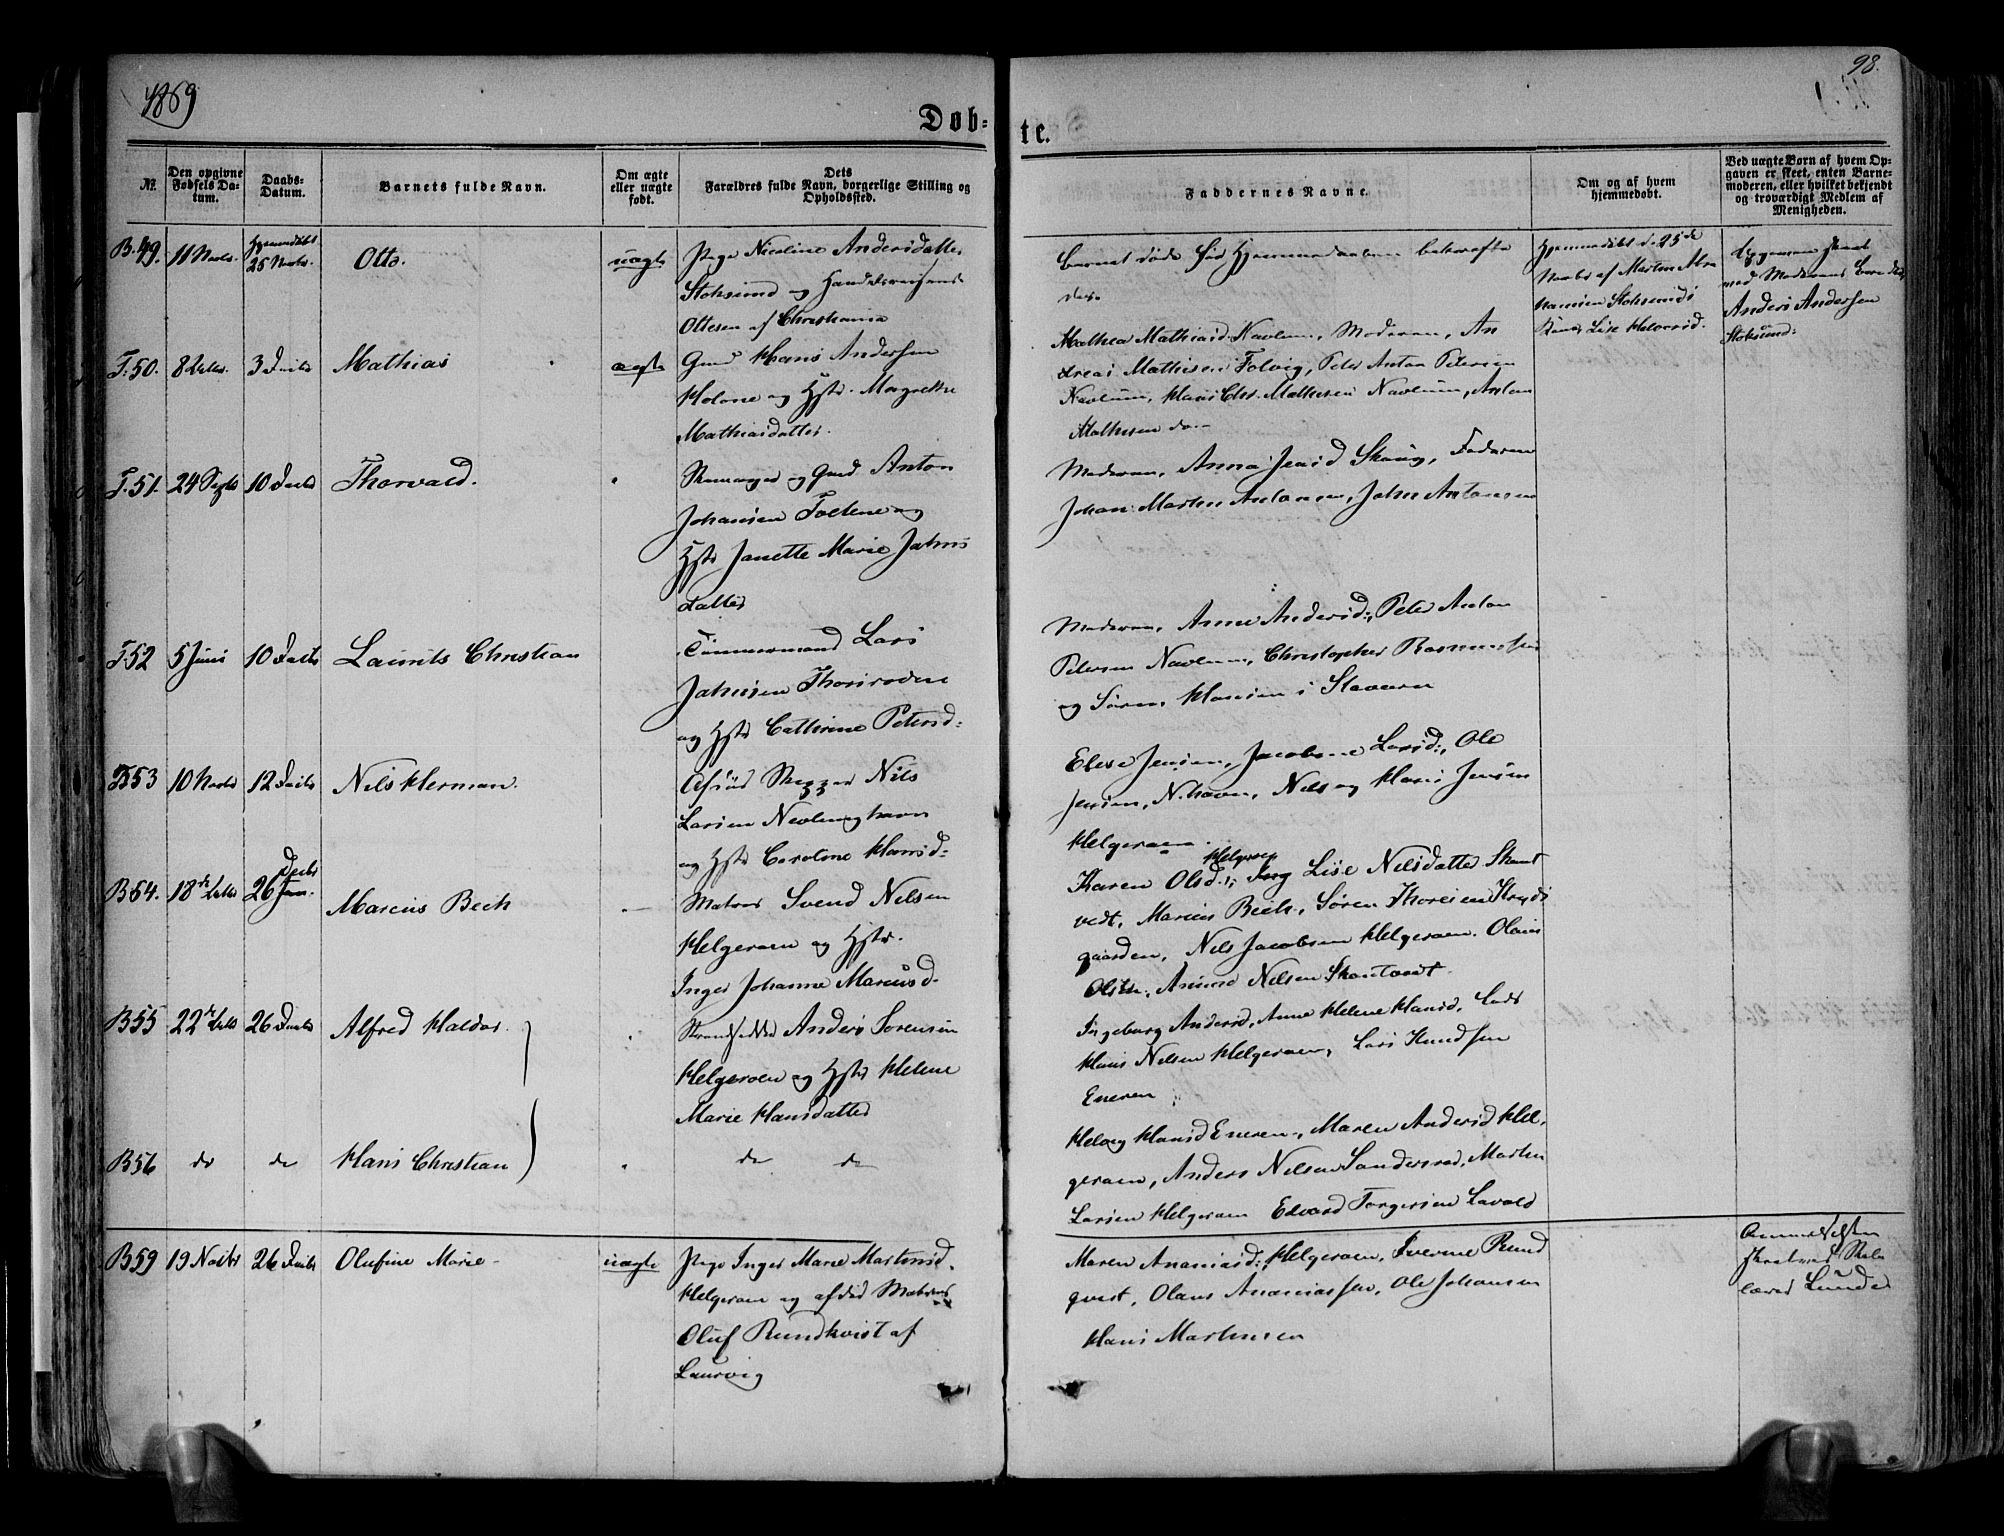 1869
98.
Døb=
te.
№
Den opgivne Fødsels Da-tum.
Daabs-Datum.
Barnets fulde Navn.
Om ægte eller uægte født.
Dets Forældres fulde Navn, borgerlige Stilling og Opholdssted.
Faddernes Navne.
Om og af hvem hjemmedøbt.
Ved uægte Børn af hvem Op-gaven er skeet, enten Barne-moderen, eller hvilket bekjendt og troværdigt Medlem af Menigheden.
B.49. 11 Novbr. Hjemmedøbt 25 Novbr. Otto. uægte
Pige Nicoline Andersdatter
Stoksund og
Ottesen af Christiania
Barnet døde før
Hjemmedøbt d. 25de
Novbr af Martin Abra
hamsen Stoksunds
med Moderens Broder
Anders Andersen
Stoksund.
T.50. 8 3 Decbr Mathias ægte
Gmd Hans Andersen
og Hstr. Margrethe
Mathiasdatter.
Mathea Mathiasd. Navlum, Moderen, An
dreas Mathisen Folvig, Peter Anton Petersen
Navlum, Hans Chr. Mathisen Navlum, Anton
Mathisen do.
T.51. 24 Septbr 10 Decbr Thorvald.
og Gmd Anton
Johansen Foldene og
Hstr Janette Marie Jahns
datter
Moderen, Anna Jensd Skoug, Faderen
Johan Martin Antonsen, Jahn Antonsen
T.52 5 Juni 10 Decbr Laurits Christian
Tømmermand Lars
Jahnsen
og Hstr Cathrine Petersd=
Moderen, Anne Andersd:, Peter Anton
Petersen Navlum, Christopher Rasmussen
og Søren Hansen i Stavern
B53 10 Novbr 12 Decbr Nils Herman.
Skipper Nils
Larsen Nevlunghavn
og Hstr Caroline Hansd=
Elise Jensen, Jacobine Larsd:, Ole
Jensen, N.havn, Nils og Hans Jensen
Helgeroen.
B54. 18de 26 Decbr Marcus Bech
Matros Svend Nilsen
Helgeroen og Hstr.
Inger Johanne Marcusd.
Karen Olsd.: Helgeroen Lise Nilsdatter Skaut
vedt, Marcus Bech, Søren
gaarden, Nils Jacobsen Helgeroen. Olaus
Olsen, Nilsen Skautvedt.
B55 22de 26 Decbr Alfred Haldor.
Anders Sørensen
Helgeroen og Hstr Helene
Marie Hansdatter
Ingeborg Andersd, Anne Helene Hansd, Lars
Hans Nilsen Helgeroen, Lars Knudsen
Eneren
B56 do do Hans Christian
do do
Helvig Hansd Eneren, Maren Andersd Hel,
geroen, Anders Nilsen Sandersrød, Martin
Larsen Helgeroen Edvard Torgersen
B59 19 Novbr 26 Decbr Olufine Marie uægte
Pige Inger Marie Martinsd.
Helgeroen og afdød Matros
Oluf Rundkvist af
Laurvig
Maren Ananiasd: Helgeroen, Rund
qvist, Olaus Ananiassen, Ole Johansen
Hans Martinsen
lærer Lunde